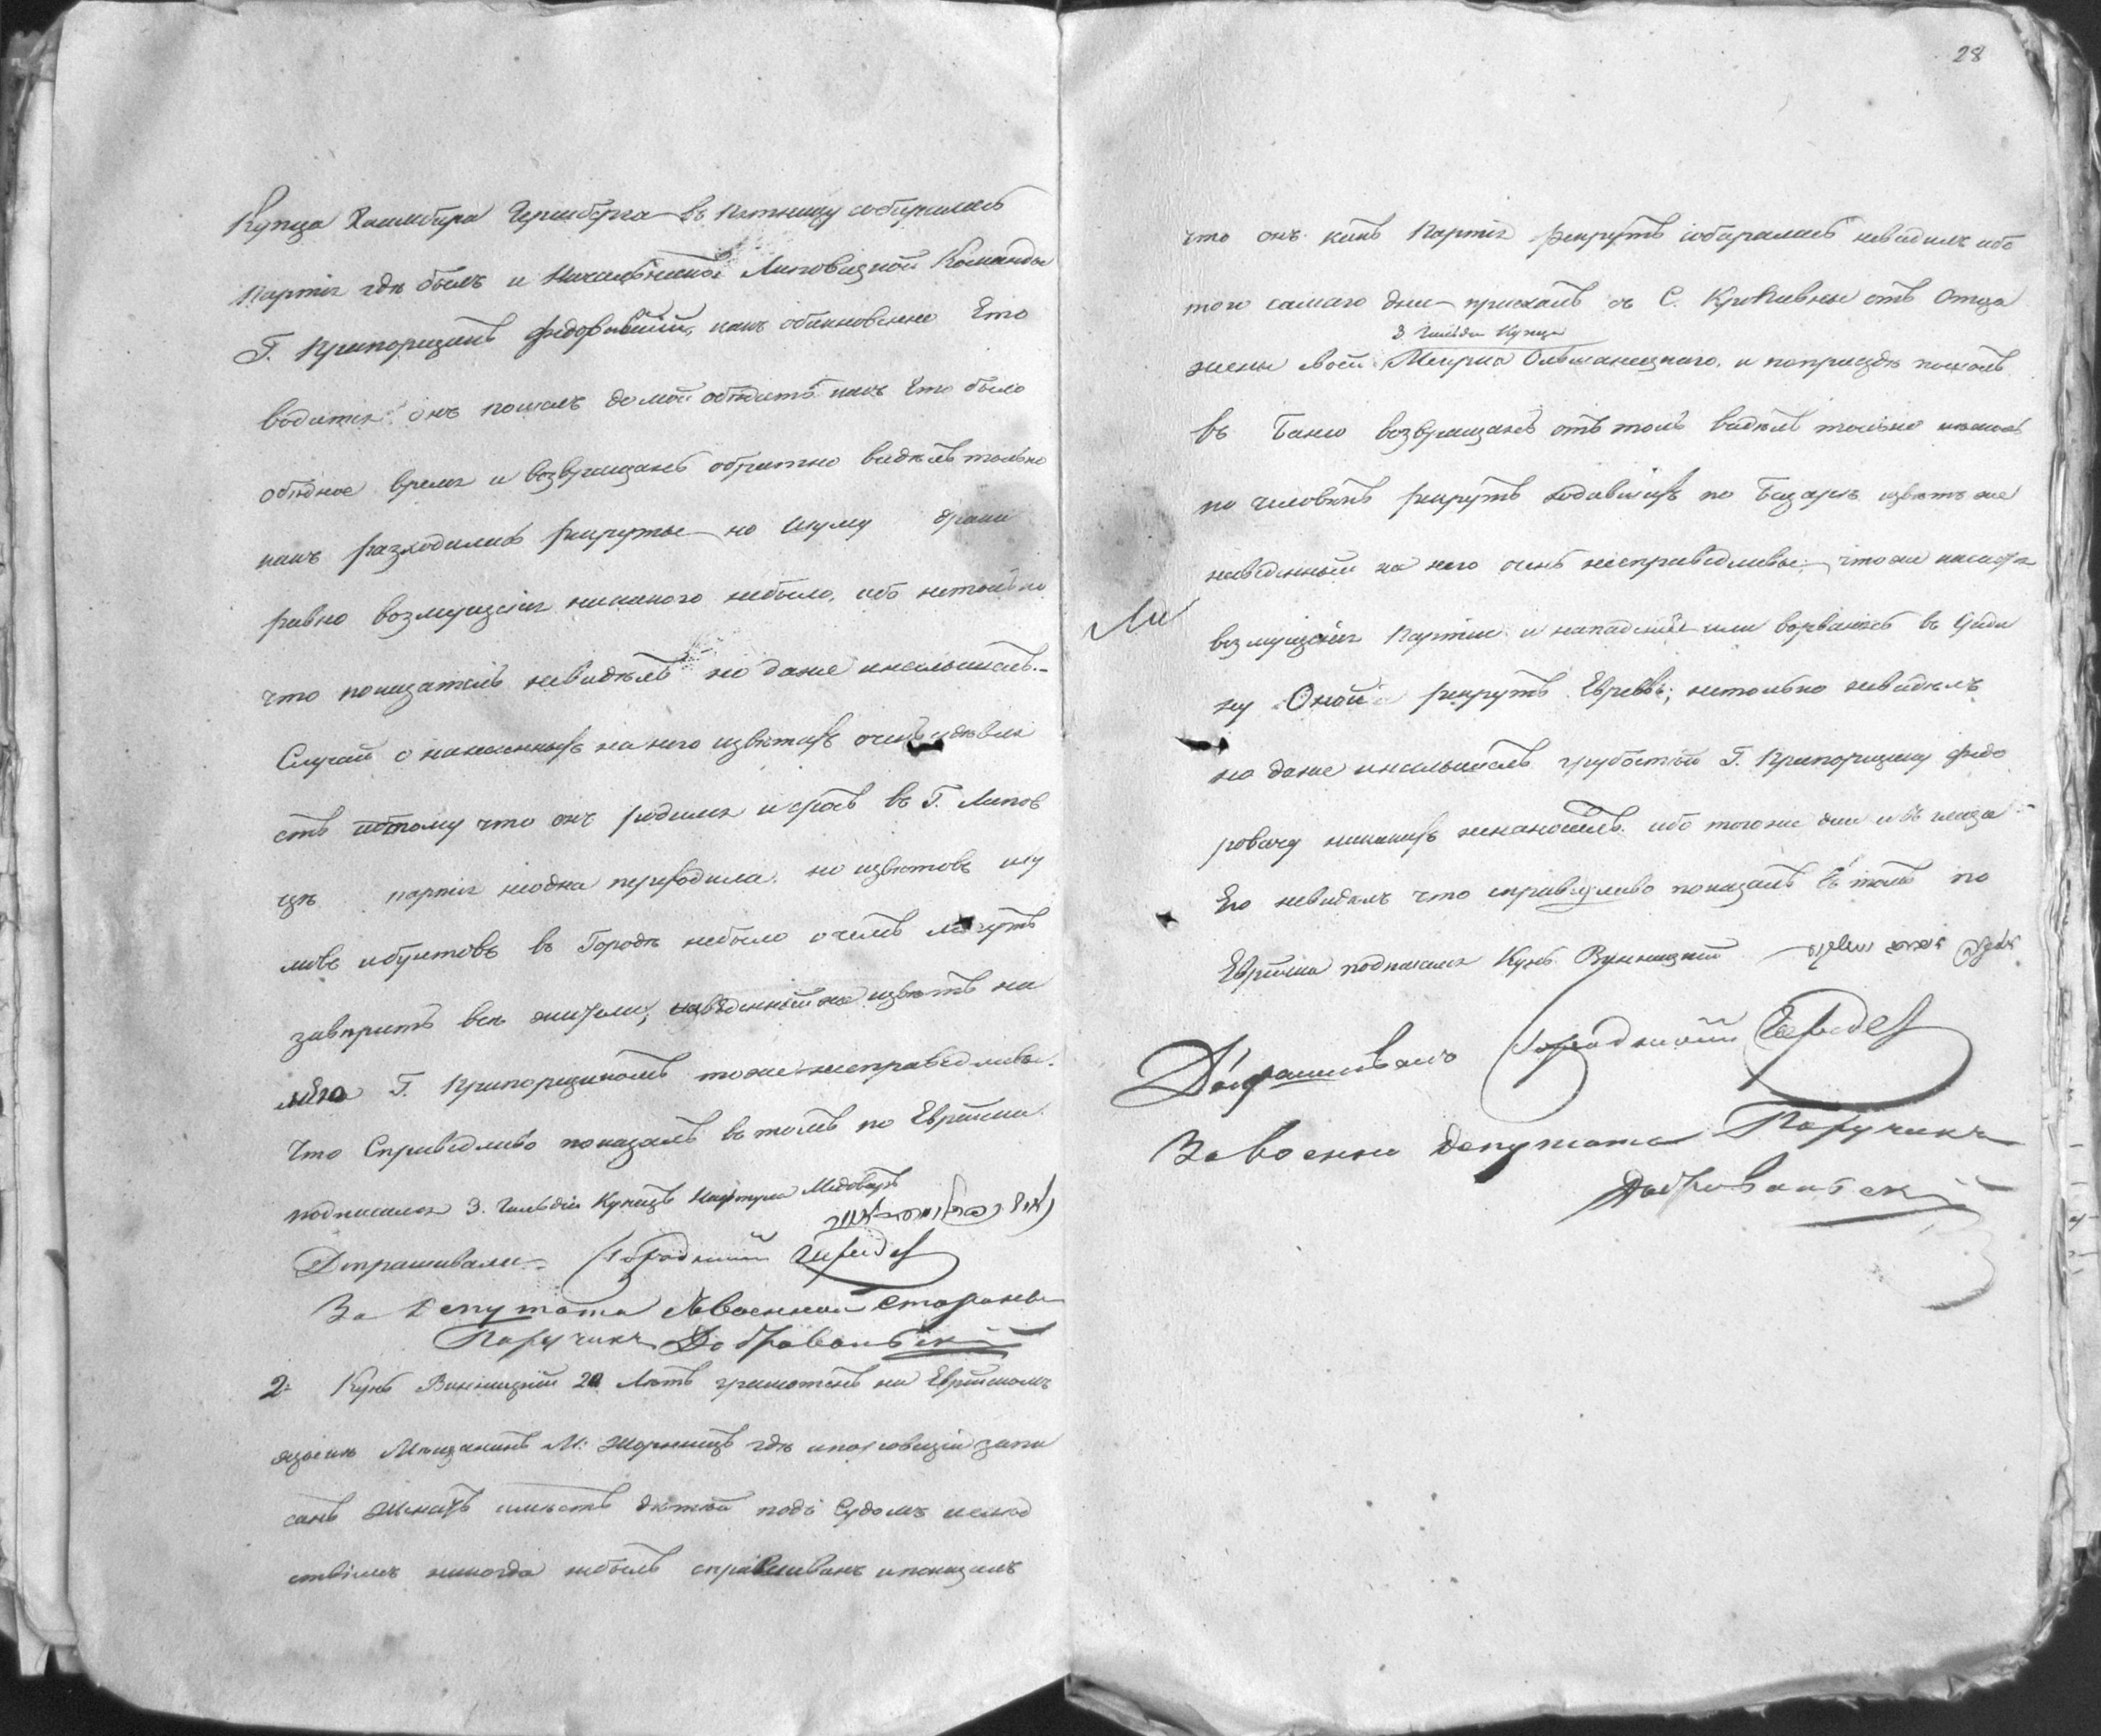 Купца Хаимбера Гершберга въ Пятницу собиралась
Партія где былъ и Начальникъ Липовецкой Команды
Г. Прапорщикъ Федоровичь, какъ обикновенно Ето
водится онъ пошелъ домой обедать какъ Ето было
обеднее время и возвращаясь обратно виделъ только
какъ разходились рекруты но шуму драки
равно возмущенія никакого небыло, ибо нетолько
что показатель невиделъ но даже инеслышалъ.
Случай о нанесенныхъ на него изветахъ очень удивля
етъ потому что онъ родился изросъ въ Г. Липов
це партія неодна переходила. но изветовъ шу
мовъ ибунтовъ въ Городе небыло о чемъ могутъ
заверить все жители, наведенный же изветъ на
него Г. Прапорщикомъ тоже несправедливы.
Что Справедливо показалъ въ томъ по Еврейски
подписался 3. Гильдіи Купецъ Нафтула Медоваръ
Допрашивали. Городничій
За Депутата Военной стороны
Поручикъ Добровольскій
2. Кунь Винницкій 20 Летъ грамотенъ на Еврейскомъ
языке Мещанинъ М. Жорнищъ где ипоревизіи запи
санъ женатъ имеетъ детей подъ Судомъ ислед
ствіемъ никогда небылъ спрашиванъ ипоказалъ
28
что онъ какъ Партія рекрутъ собиралась невиделъ ибо
того самаго дни пріехалъ съ С. Кропивны отъ Отца
3 Гильдіи Купца
жены своей Меира Ольшанецкаго, и поприезде пошолъ
въ Баню возвращаясь оттоль виделъ только несколь
ко человекъ рекрутъ ходившихъ по Базаре изветъ же
наведенный на него очень несправедливы, чтоже касается
возмущенія Партіи и нападеніе или ворваніясь въ Среди
ну Оной рекрутъ Евреевъ; нетолько невиделъ
но даже инеслышалъ грубостей Г. Прапорщику Федо
ровичу никакихъ ненаносилъ ибо тогоже дни ивъ глаза
Его невиделъ что справедливо показалъ въ томъ по
Еврейски подписался Кунь Винницкій
Допрашивалъ Городничій
За военнаго депутата Поручикъ
Добровольскій